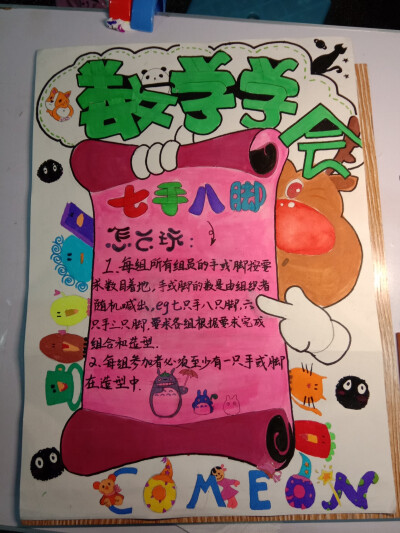 数学学会
七手八脚
怎么玩:
1、每组所有组员的手或脚按要
求数目着地,手或脚的数是由组织者
随机喊出,eg七只手八只脚,六
只手三只脚,要求各组根据要求完成
组合和造型.
2、每组参加者必须至少有一只手或脚
在造型中.
COME ON